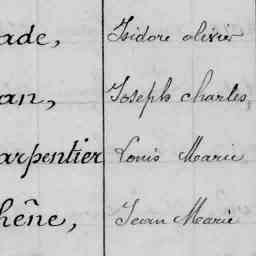 ade, Isidore olivier
an, Joseph charles,
arpentier Louis Marie
hêne, Jean Marie